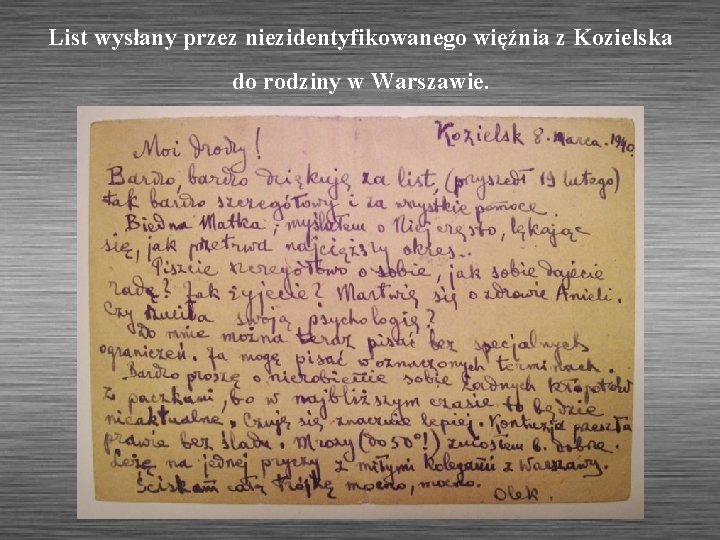 List wysłany przez niezidentyfikowanego więźnia z Kozielska
do rodziny w Warszawie.
Kozielsk 8. Marca. 1940.
Moi drodzy!
Bardzo, bardzo dziękuję za list, (przyszedł 19 lutego)
tak bardzo szczegółowy i za wszystkie pomoce.
Biedna Matka, myślałem o Niej często, lękając
się, jak przetrwa najcięższy okres..
Piszcie szczegółowo o sobie, jak sobie dajecie
radę? Jak żyjecie? Martwię się o zdrowie Anieli.
Czy rzuciła swoją psychologię?
Do mnie można teraz pisać bez specjalnych
ograniczeń. Ja mogę pisać w oznaczonych terminach.
Bardzo proszę o nierobienie sobie żadnych kłopotów
z paczkami, bo w najbliższym czasie to będzie
nieaktualne. Czuję się znacznie lepiej. Kontuzja przeszła
prawie bez śladu. Mrozy (do 50°!) zniosłem b. dobrze.
Leżę na jednej pryczy z miłymi kolegami z Warszawy.
Ściskam całą trójkę mocno, mocno.
Olek.